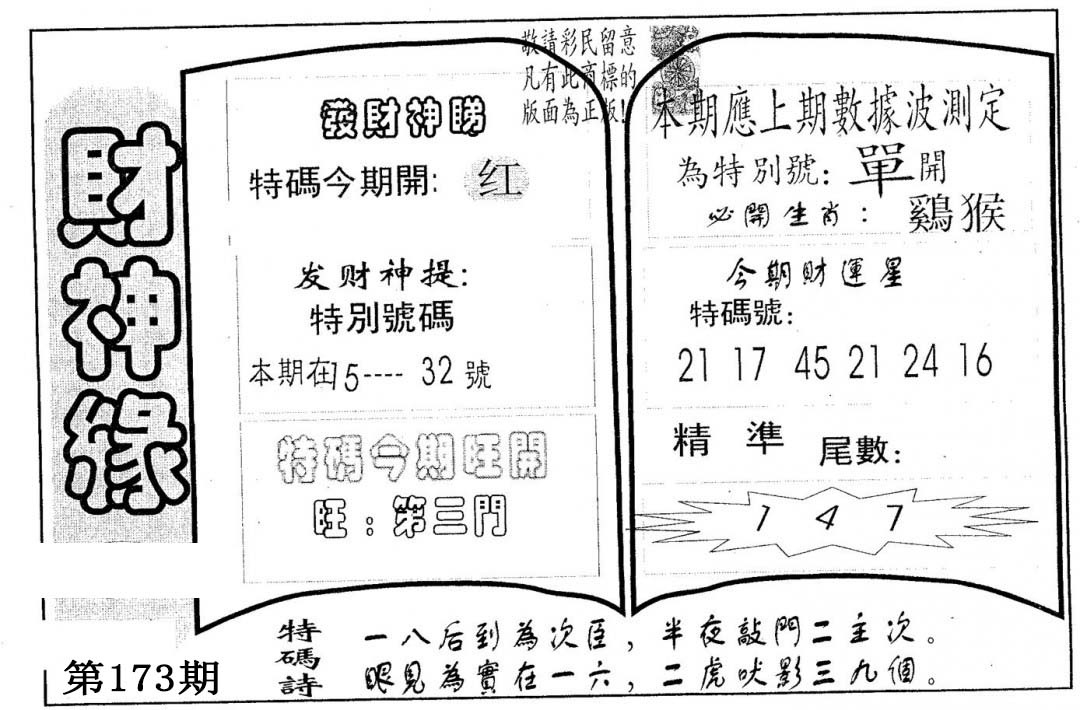 敬請彩民留意
凡有此商標的
版面為正版!
財神緣
發財神睇
特碼今期開: 红
发财神提:
特別號碼
本期在15----32號
特碼今期旺開
旺:第三門
本期應上期數據波測定
為特別號: 單開
必開生肖: 鷄猴
今期財運星
特碼號:
21 17 45 21 24 16
精準尾數:
1 4 7
特碼詩
一八后到為次臣, 半夜敲門二主次。
眼見為實在一六, 二虎吠影三九個。
第173期